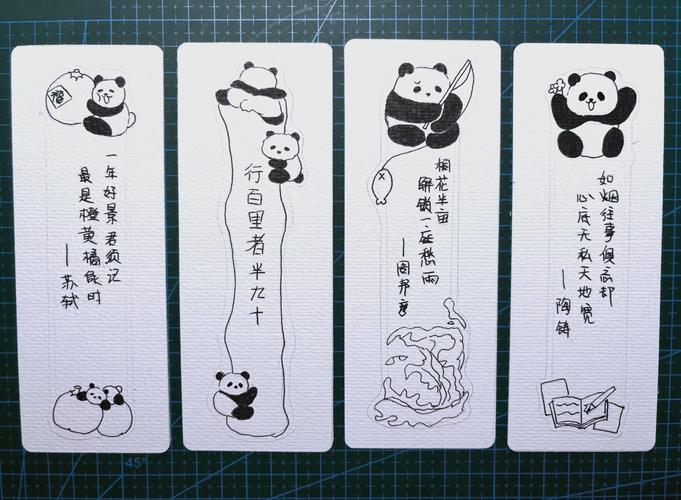 一年好景君须记
最是橙黄橘绿时
——苏轼
行百里者半九十
桐花半亩
静锁一庭愁雨
——周邦彦
如烟往事俱忘却
心底无私天地宽
——陶铸
45°